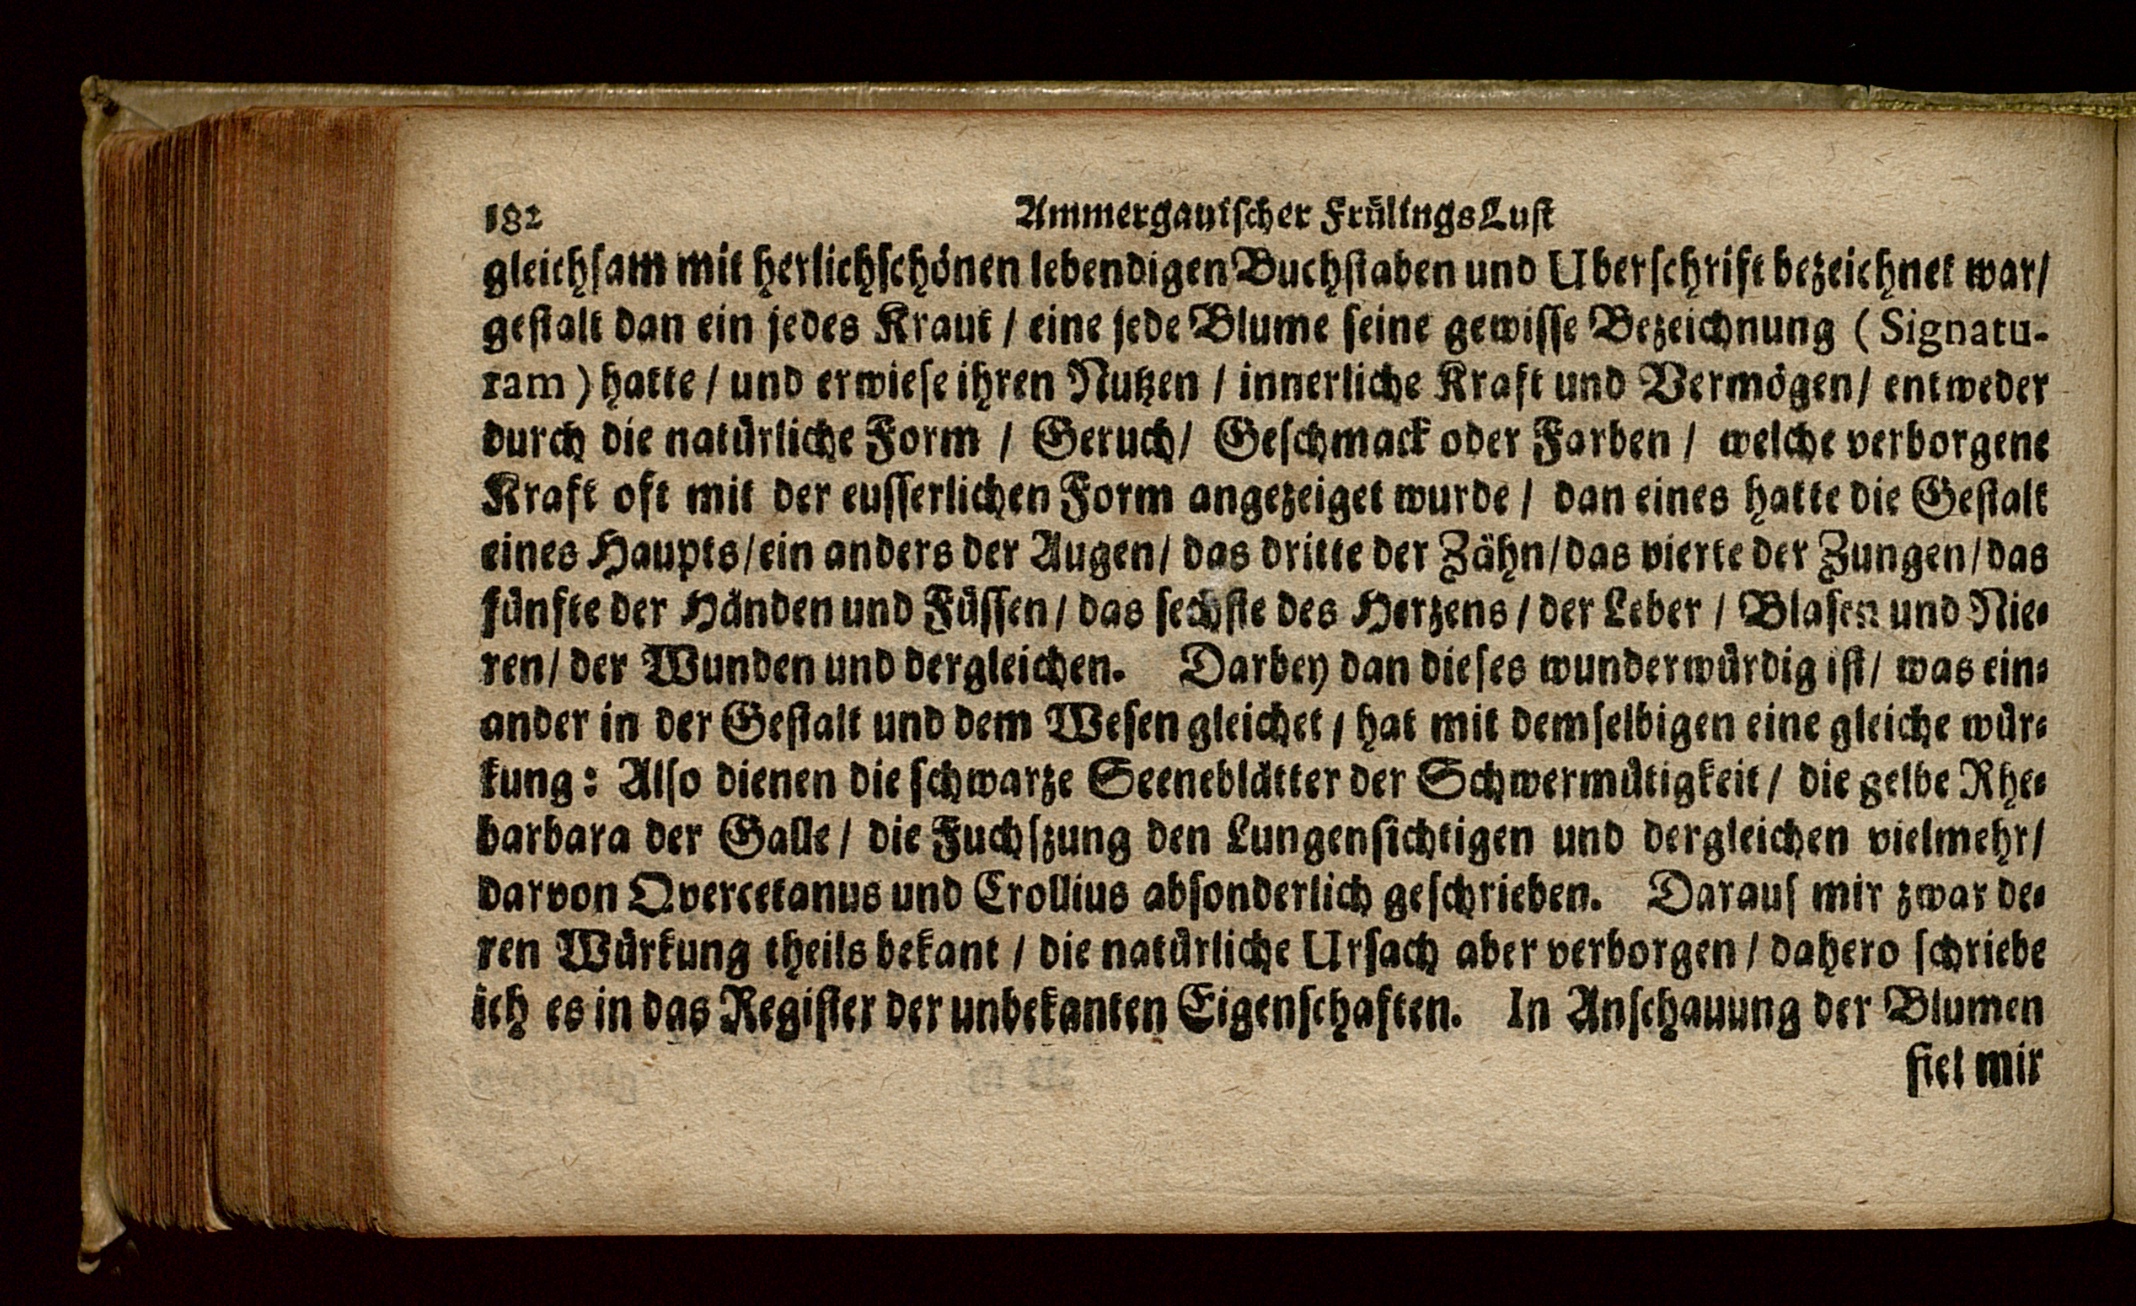 182 Ammergauischer FrülingsLust
gleichsam mit herlichschönen lebendigen Buchstaben und Uberschrift bezeichnet war/
gestalt dan ein jedes Kraut / eine jede Blume seine gewisse Bezeichnung ( Signatu-
ram ) hatte / und erwiese ihren Nutzen / innerliche Kraft und Vermögen/ entweder
durch die natürliche Form / Geruch/ Geschmack oder Farben / welche verborgene
Kraft oft mit der eusserlichen Form angezeiget wurde / dan eines hatte die Gestalt
eines Haupts/ein anders der Augen/ das dritte der Zähn/das vierte der Zungen/das
fünfte der Händen und Füssen/ das sechste des Herzens / der Leber / Blasen und Nie-
ren/ der Wunden und dergleichen. Darbey dan dieses wunderwürdig ist/ was ein-
ander in der Gestalt und dem Wesen gleichet / hat mit demselbigen eine gleiche wür-
kung: Also dienen die schwarze Seeneblätter der Schwermütigkeit/ die gelbe Rhe-
barbara der Galle/ die Fuchszung den Lungensichtigen und dergleichen vielmehr/
darvon Qvercetanus und Crollius absonderlich geschrieben. Daraus mir zwar de-
ren Würkung theils bekant / die natürliche Ursach aber verborgen / dahero schriebe
ich es in das Register der unbekanten Eigenschaften. In Anschauung der Blumen
fiel mir